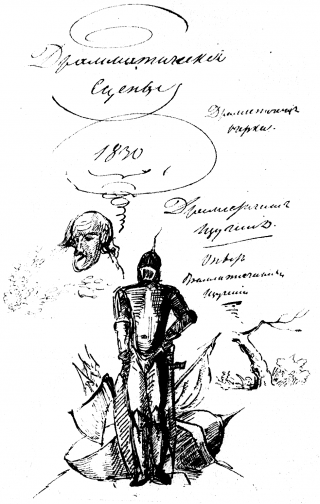 Драмматическія
Сцены
1830
Драматическіе
очерки.
Драматическія
Изученія
Опытъ
Драматическихъ
Изученій